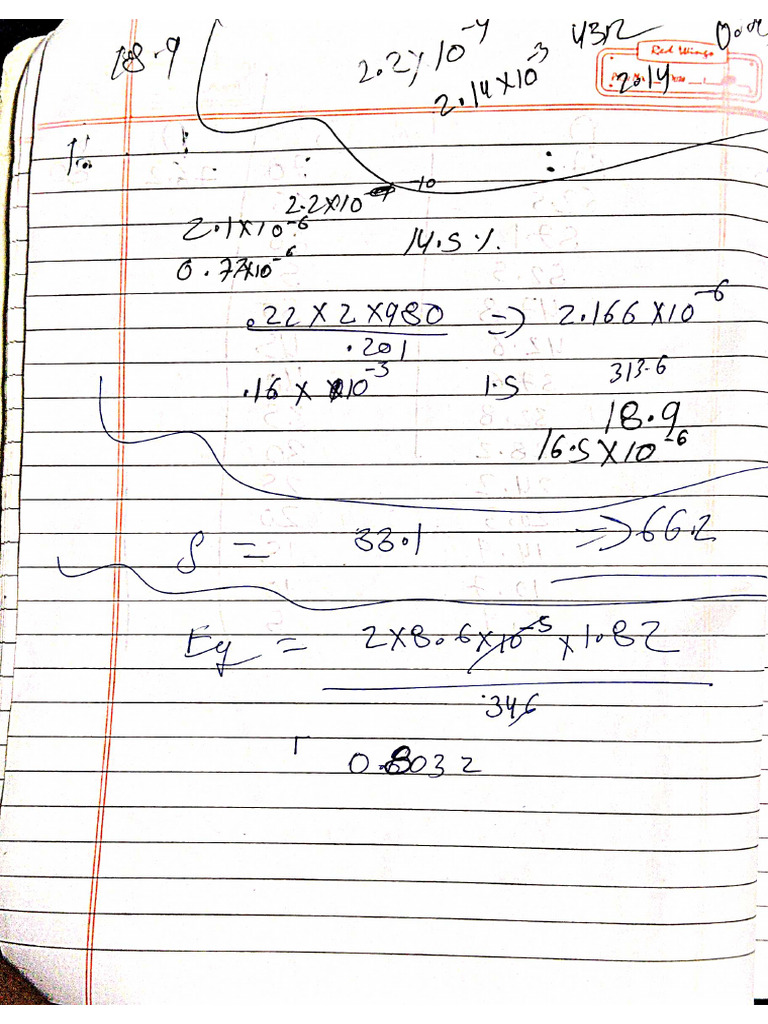 18.9 2.2×10⁻⁴ 43.2
2.14×10⁻³ Red Wings
2.14
2.2×10 ⁻¹⁰
2.1×10⁻⁶ 14.5 %.
0.77×10⁻⁶
.22 × 2 × 980 => 2.166 ×10⁻⁶
.201
.16 × 10⁻³ 1.5 313.6
18.9
16.5×10⁻⁶
S = 33.1 => 66.2
Eg = 2×8.6×10⁻⁵×1.82
.346
0.8032